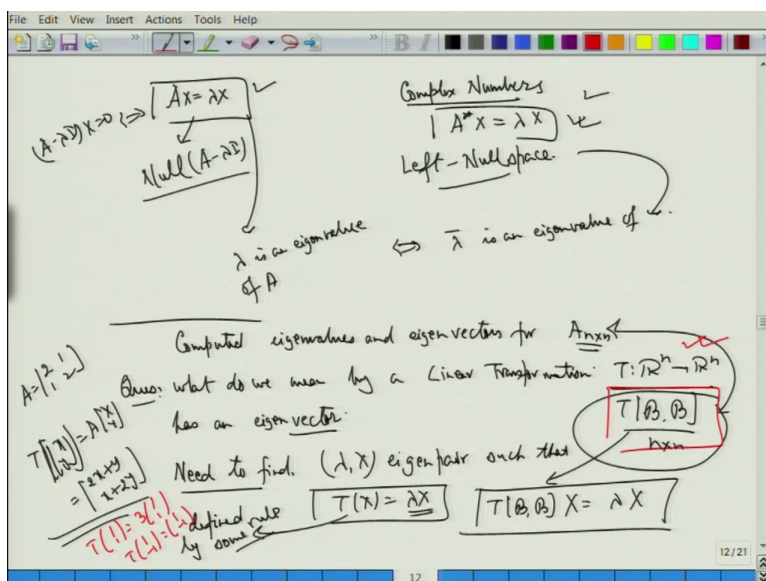 File Edit View Insert Actions Tools Help
(A-λI)X=0 ⟺ Ax = λx
Null(A-λI)
Complex Numbers
A*X = λX
Left-Nullspace.
λ is an eigenvalue of A ⟺ λ̄ is an eigenvalue of
Computed eigenvalues and eigenvectors for A_{n×n}
Ques: what do we mean by a Linear Transformation T: ℝⁿ → ℝⁿ
has an eigenvector.
T[B, B]
n×n
Need to find. (λ, X) eigenpair such that
T(X) = λX
T[B, B] X = λ X
defined rule
by some
A = [2 1
1 2]
T([x
y]) = A[x
y]
= [2x+y
x+2y]
T(1
1) = 3(1
1)
12 / 21
12